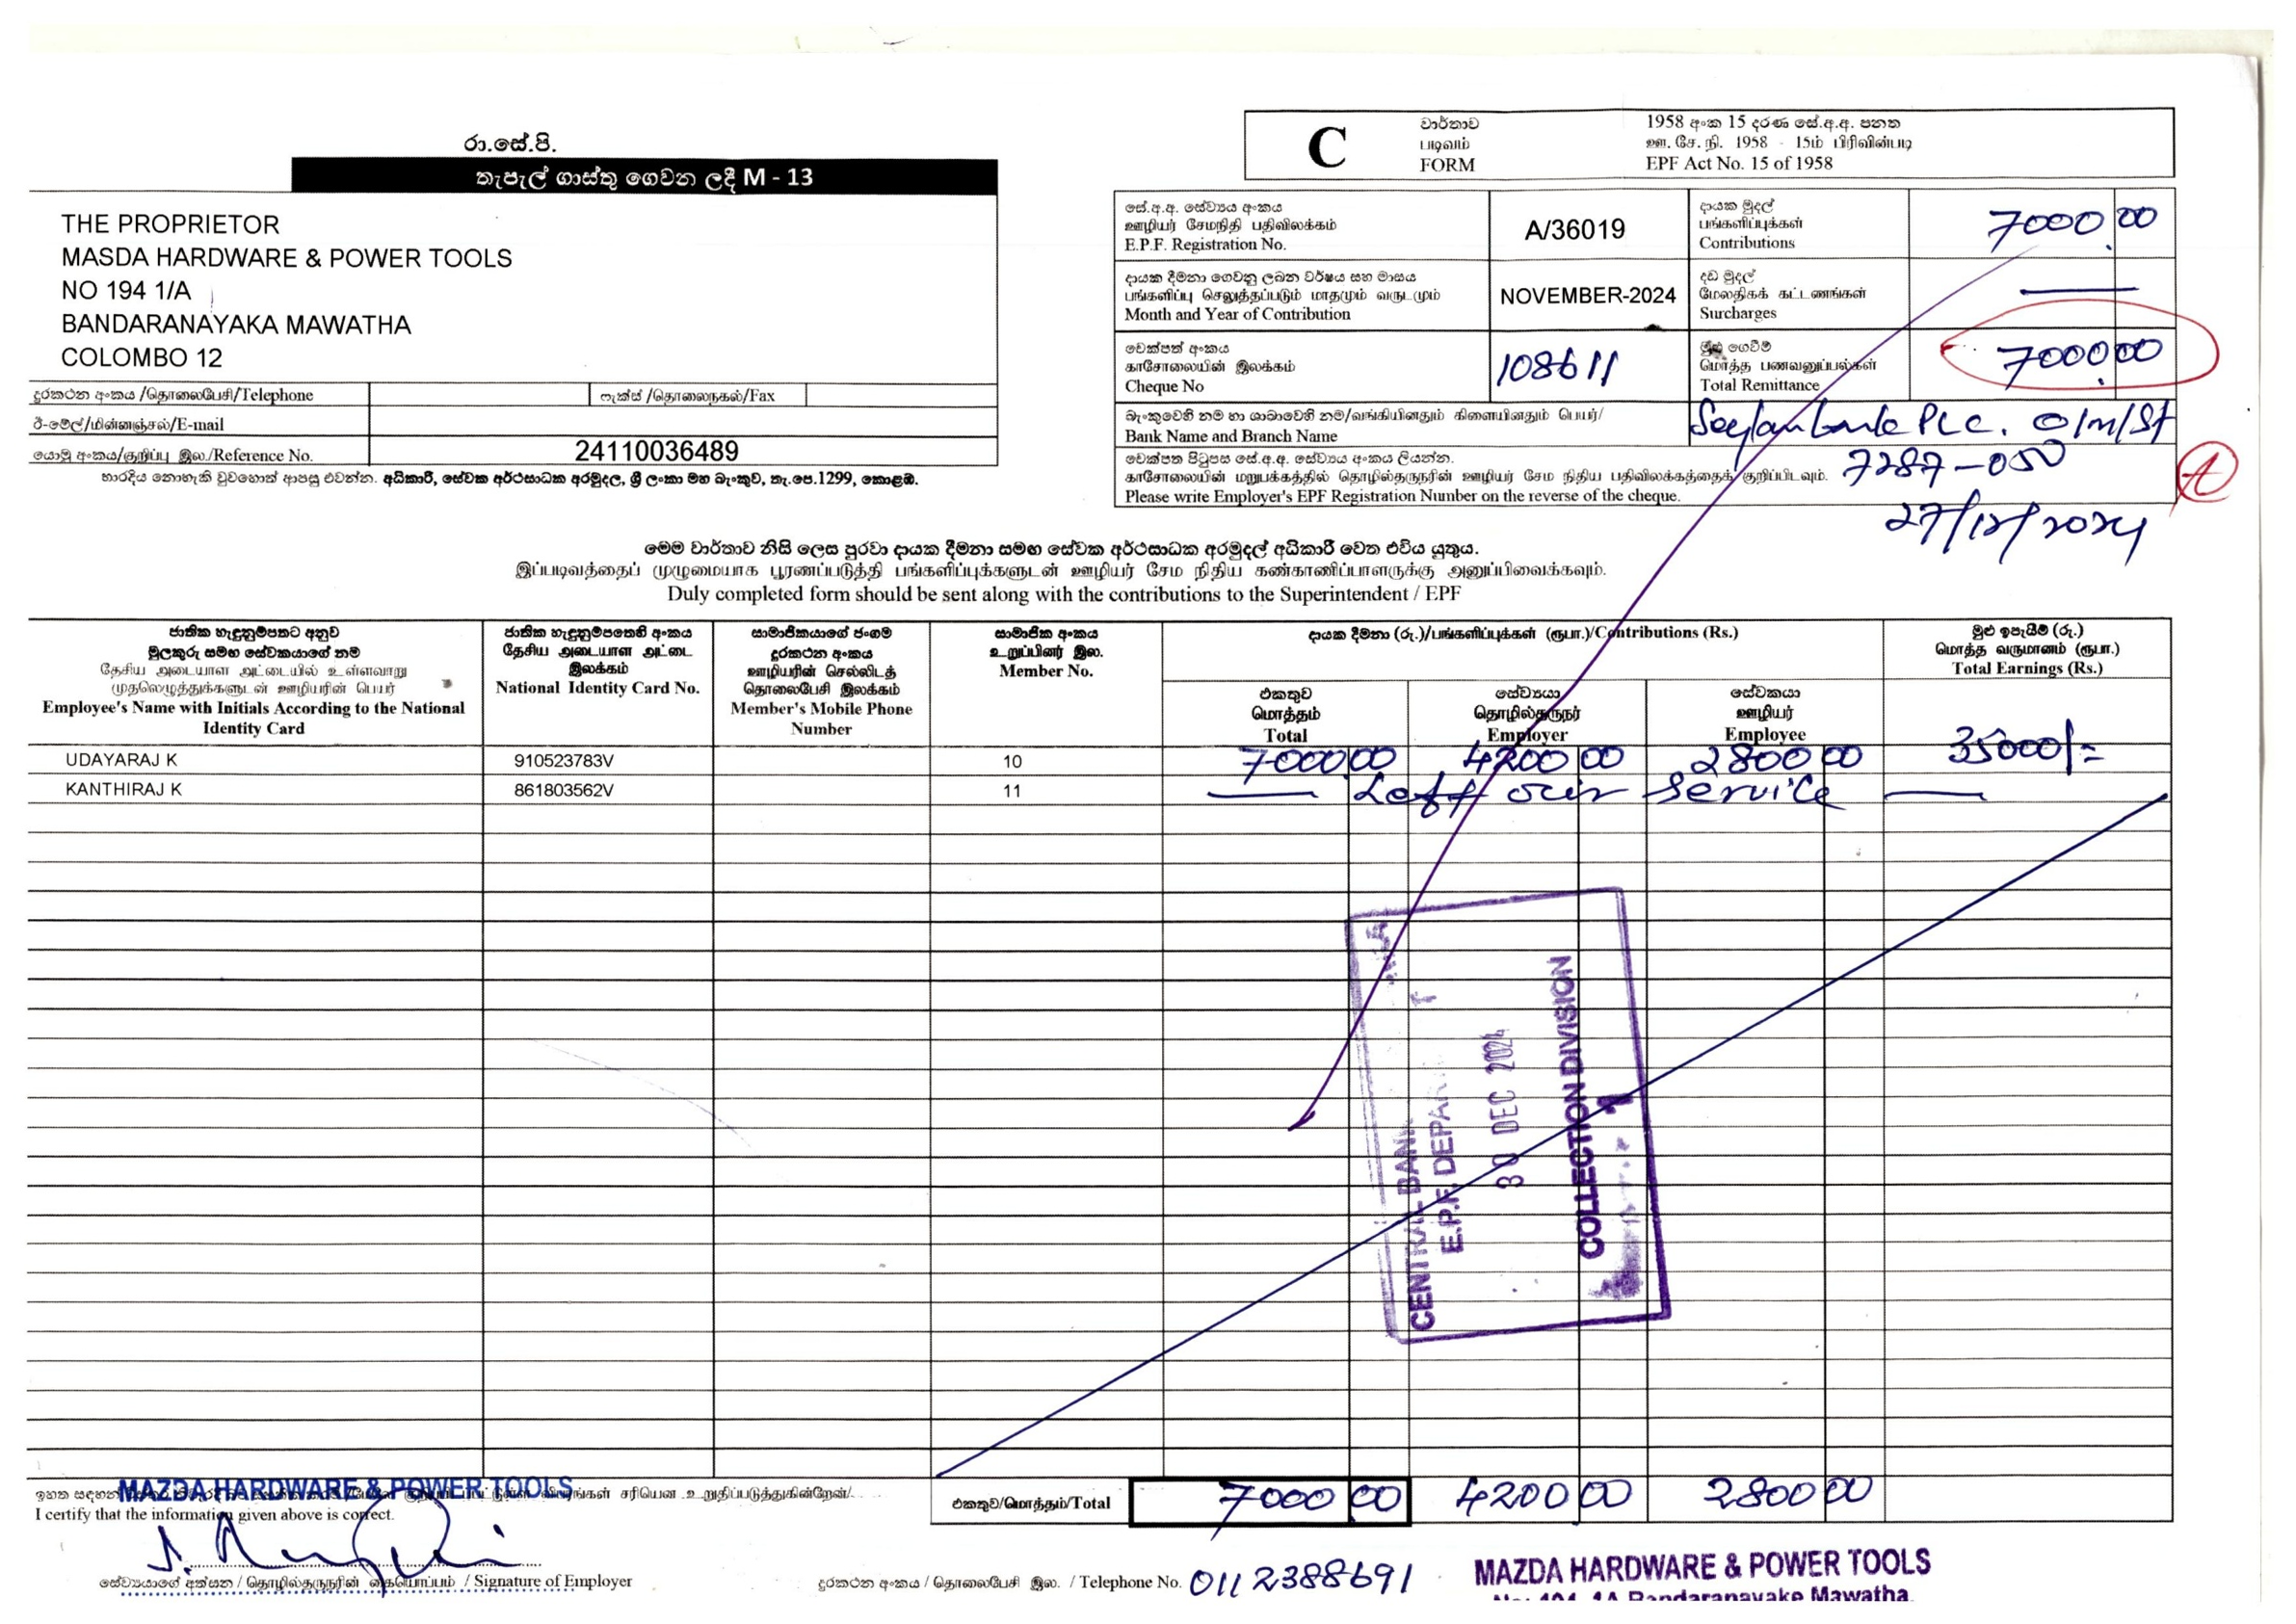 රා.සේ.පි.
තැපැල් ගාස්තු ගෙවන ලදී M - 13
THE PROPRIETOR
MASDA HARDWARE & POWER TOOLS
NO 194 1/A
BANDARANAYAKA MAWATHA
COLOMBO 12
දුරකථන අංකය /தொலைபேசி/Telephone
ෆැක්ස් /தொலைநகல்/Fax
ඊ-මේල්/மின்னஞ்சல்/E-mail
යොමු අංකය/குறிப்பு இல./Reference No. 24110036489
භාරදිය නොහැකි වුවහොත් ආපසු එවන්න. අධිකාරී, සේවක අර්ථසාධක අරමුදල, ශ්‍රී ලංකා මහ බැංකුව, තැ.පෙ.1299, කොළඹ.
C
වාර්තාව
படிவம்
FORM
1958 අංක 15 දරණ සේ.අ.අ. පනත
ஊ. சே. நி. 1958 - 15ம் பிரிவின்படி
EPF Act No. 15 of 1958
සේ.අ.අ. සේව්‍ය අංකය
ஊழியர் சேமநிதி பதிவிலக்கம்
E.P.F. Registration No.
A/36019
දායක මුදල්
பங்களிப்புக்கள்
Contributions
7000.00
දායක දීමනා ගෙවනු ලබන වර්ෂය සහ මාසය
பங்களிப்பு செலுத்தப்படும் மாதமும் வருடமும்
Month and Year of Contribution
NOVEMBER-2024
දඩ මුදල්
மேலதிகக் கட்டணங்கள்
Surcharges
චෙක්පත් අංකය
காசோலையின் இலக்கம்
Cheque No
108611
මුළු ගෙවීම්
மொத்த பணவனுப்பல்கள்
Total Remittance
7000.00
බැංකුවෙහි නම හා ශාඛාවෙහි නම/வங்கியினதும் கிளையினதும் பெயர்/
Bank Name and Branch Name
Seylan bank PLC. O/M/St
චෙක්පත පිටුපස සේ.අ.අ. සේව්‍ය අංකය ලියන්න.
7287-050
காசோலையின் மறுபக்கத்தில் தொழில்தருநரின் ஊழியர் சேம நிதிய பதிவிலக்கத்தைக் குறிப்பிடவும்.
Please write Employer's EPF Registration Number on the reverse of the cheque.
A
27/12/2024
මෙම වාර්තාව නිසි ලෙස පුරවා දායක දීමනා සමඟ සේවක අර්ථසාධක අරමුදල් අධිකාරී වෙත එවිය යුතුය.
இப்படிவத்தைப் முழுமையாக பூரணப்படுத்தி பங்களிப்புக்களுடன் ஊழியர் சேம நிதிய கண்காணிப்பாளருக்கு அனுப்பிவைக்கவும்.
Duly completed form should be sent along with the contributions to the Superintendent / EPF
ජාතික හැඳුනුම්පතට අනුව
මුලකුරු සමඟ සේවකයාගේ නම
தேசிய அடையாள அட்டையில் உள்ளவாறு
முதலெழுத்துக்களுடன் ஊழியரின் பெயர்
Employee's Name with Initials According to the National
Identity Card
ජාතික හැඳුනුම්පතෙහි අංකය
தேசிய அடையாள அட்டை
இலக்கம்
National Identity Card No.
සාමාජිකයාගේ ජංගම
දුරකථන අංකය
ஊழியரின் செல்லிடத்
தொலைபேசி இலக்கம்
Member's Mobile Phone
Number
සාමාජික අංකය
உறுப்பினர் இல.
Member No.
දායක දීමනා (රු.)/பங்களிப்புக்கள் (ரூபா.)/Contributions (Rs.)
එකතුව
மொத்தம்
Total
සේව්‍යයා
தொழில்தருநர்
Employer
සේවකයා
ஊழியர்
Employee
මුළු ඉපැයීම් (රු.)
மொத்த வருமானம் (ரூபா.)
Total Earnings (Rs.)
UDAYARAJ K 910523783V 10 7000 00 4200 00 2800 00 35000/=
KANTHIRAJ K 861803562V 11 Left our service
CENTRAL BANK
E.P.F. DEPAR T
30 DEC 2024
COLLECTION DIVISION
1
MAZDA HARDWARE & POWER TOOLS
ඉහත සඳහන් விபரங்கள் சரியென உறுதிப்படுத்துகின்றேன்/
I certify that the information given above is correct.
එකතුව/மொத்தம்/Total 7000 00 4200 00 2800 00
සේව්‍යයාගේ අත්සන / தொழில்தருநரின் கையொப்பம் / Signature of Employer
දුරකථන අංකය / தொலைபேசி இல. / Telephone No. 0112388691
MAZDA HARDWARE & POWER TOOLS
No: 194, 1A Bandaranayake Mawatha,